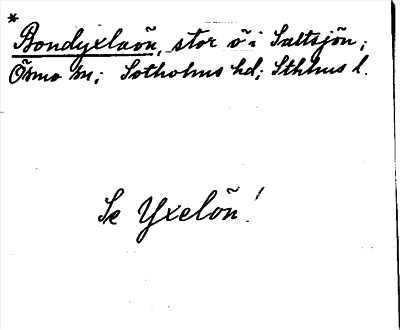 *
Bondyxlaön, stor ö i Saltsjön;
Ösmo sn; Sotholms hd; Sthlms l.
Se Yxelön!